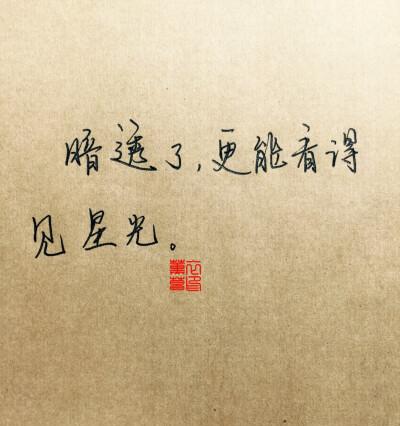 暗透了，更能看得
见星光。